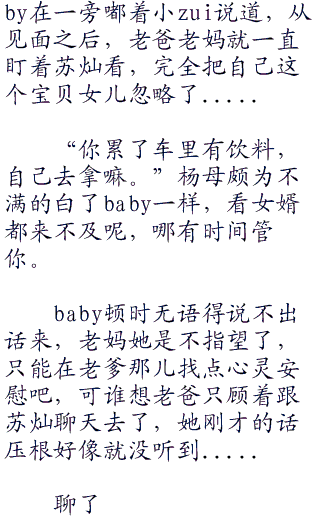 by在一旁嘟着小zui说道，从
见面之后，老爸老妈就一直
盯着苏灿看，完全把自己这
个宝贝女儿忽略了.....
“你累了车里有饮料，
自己去拿嘛。”杨母颇为不
满的白了baby一样，看女婿
都来不及呢，哪有时间管
你。
baby顿时无语得说不出
话来，老妈她是不指望了，
只能在老爹那儿找点心灵安
慰吧，可谁想老爸只顾着跟
苏灿聊天去了，她刚才的话
压根好像就没听到.....
聊了